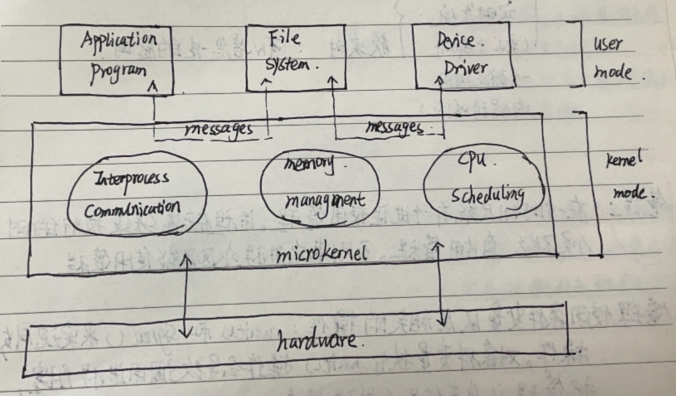 Application
Program
File
System.
Device.
Driver
user
mode.
messages
messages
Interprocess
Communication
memory
managment
CPU.
scheduling
kernel
mode.
microkernel
hardware.